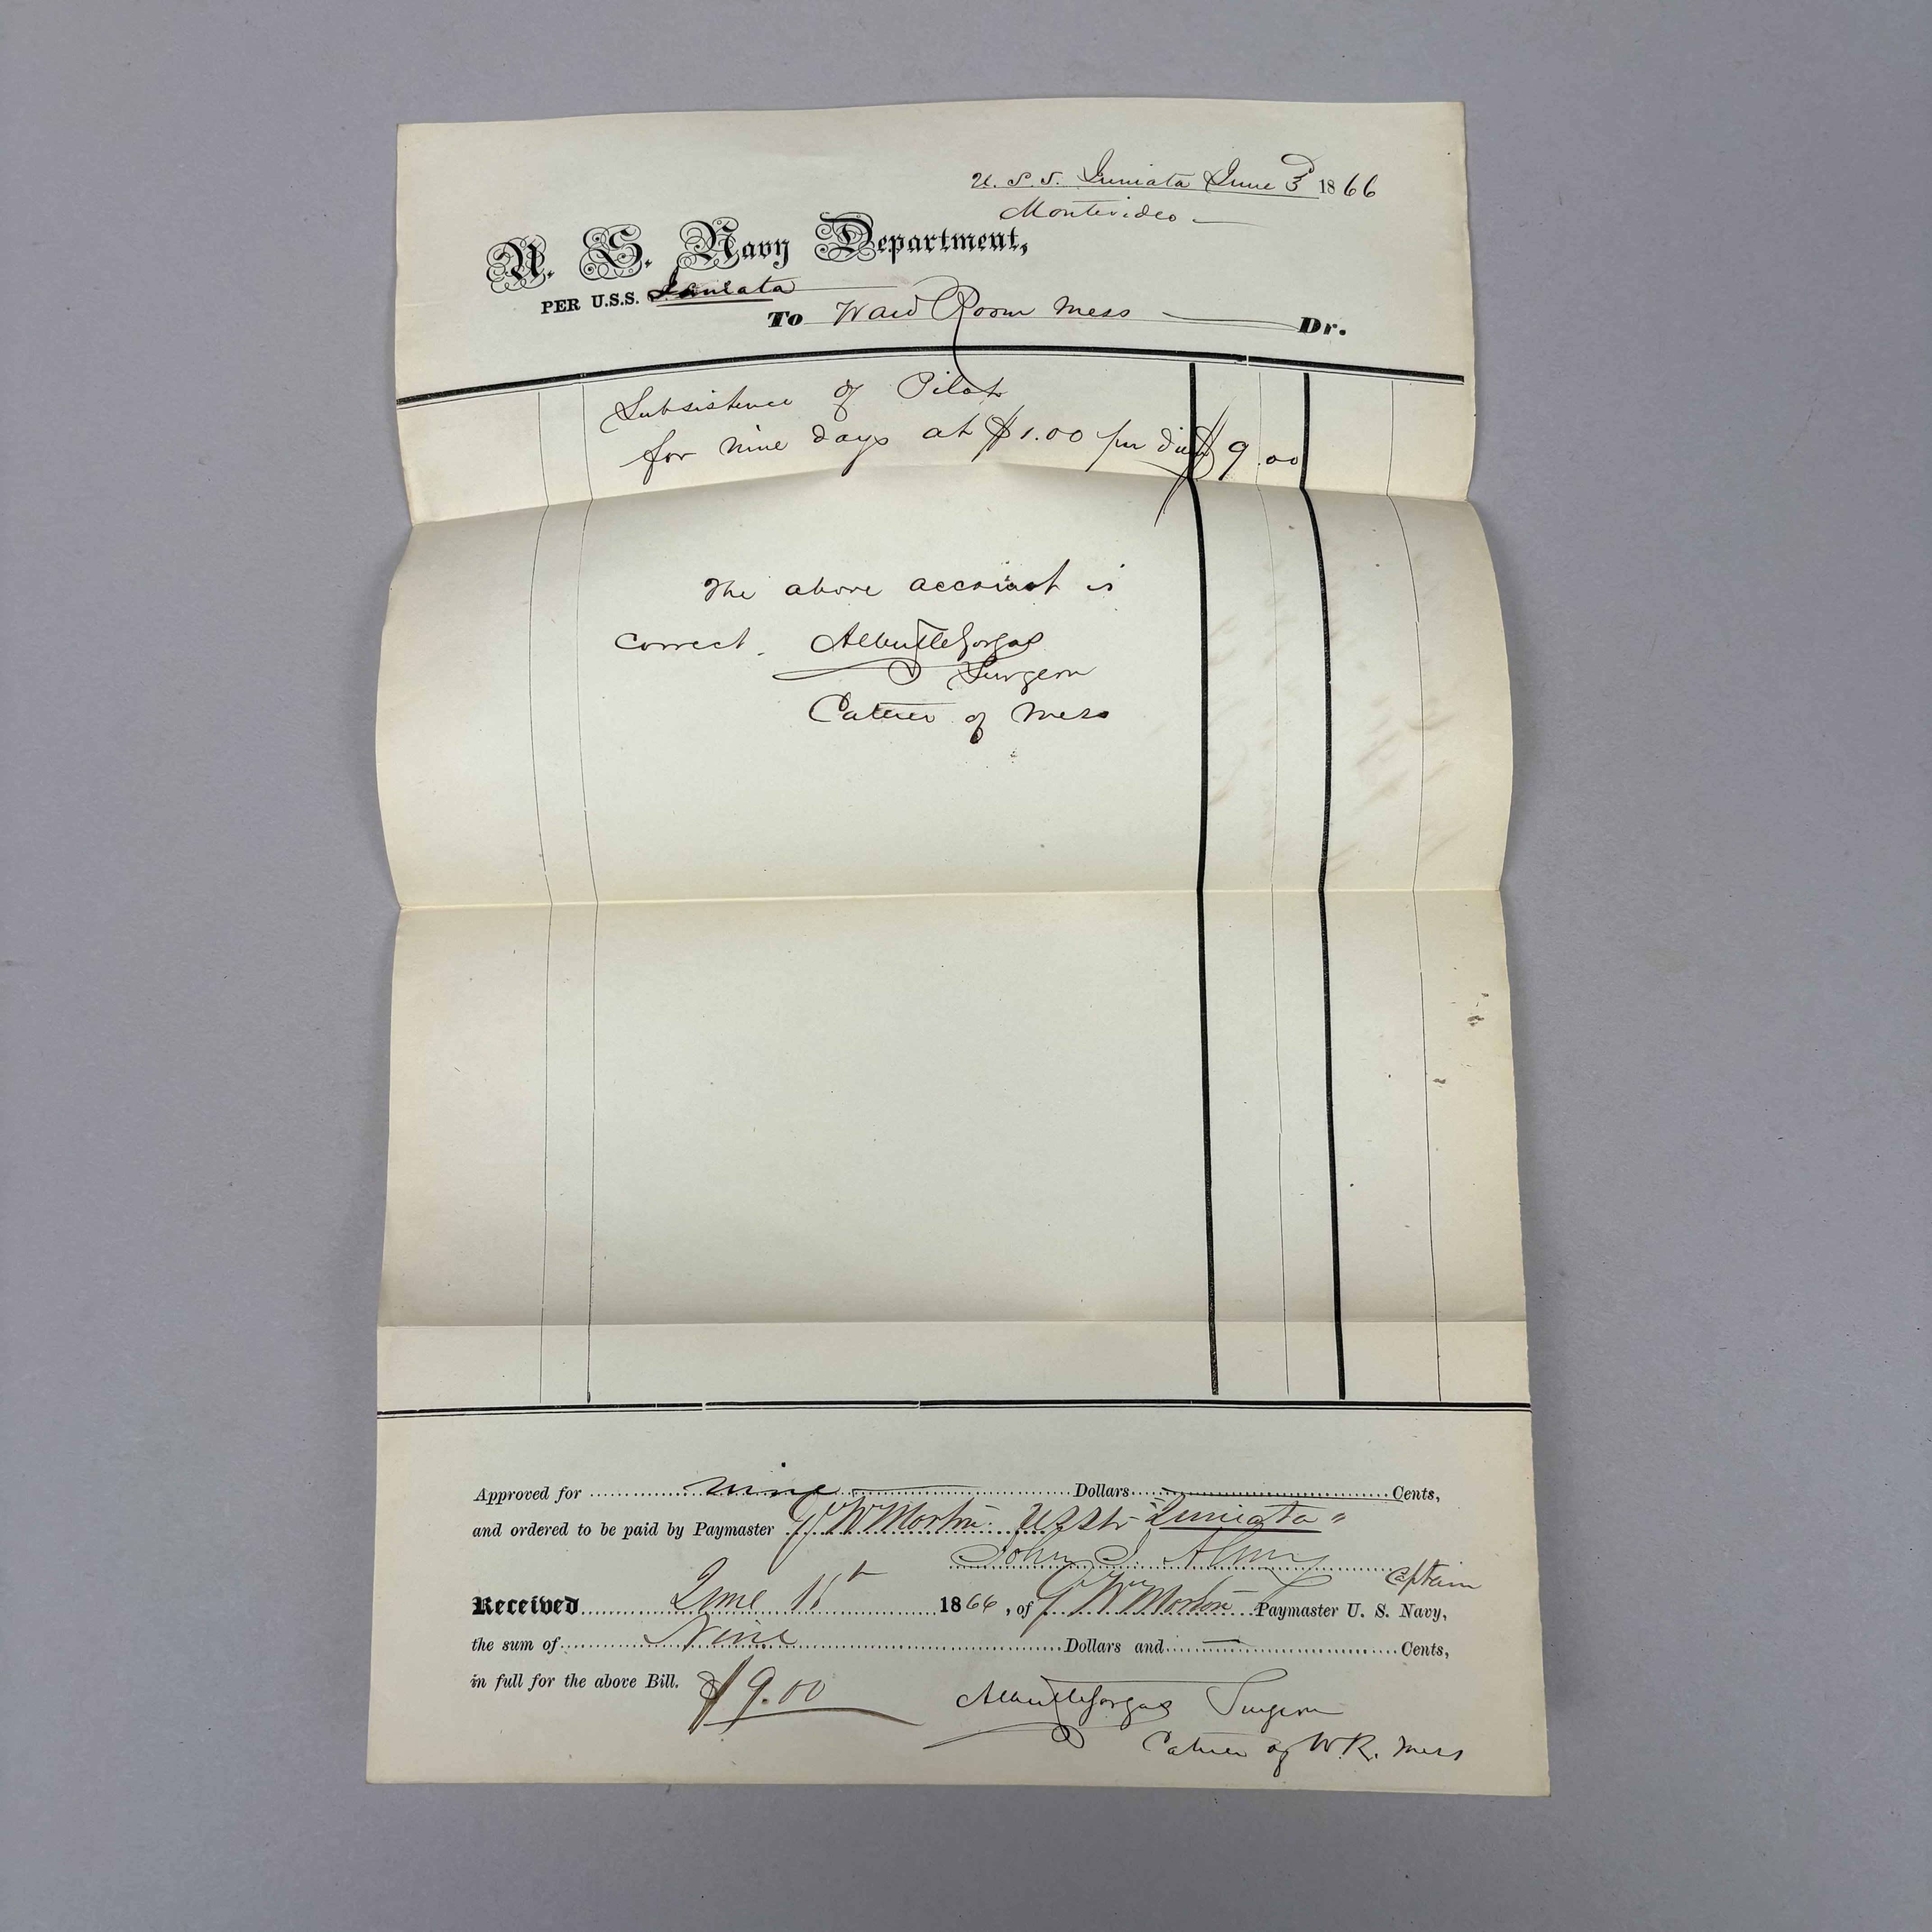 U. S. S. Juniata June 3d 1866
Montevideo
U. S. Navy Department,
PER U.S.S. Juniata
To Ward Room Mess Dr.
Subsistence of Pilot
for nine days at $1.00 per diem $9.00
The above account is
correct. Albert C Gorgas
Surgeon
Caterer of Mess
Approved for nine Dollars Cents,
and ordered to be paid by Paymaster G W Morton. USStr "Juniata"
John J. Almy Captain
Received June 1866, of G W Morton Paymaster U. S. Navy,
the sum of Nine Dollars and Cents,
in full for the above Bill. $9.00
Albert C Gorgas Surgeon
Caterer of W.R. Mess